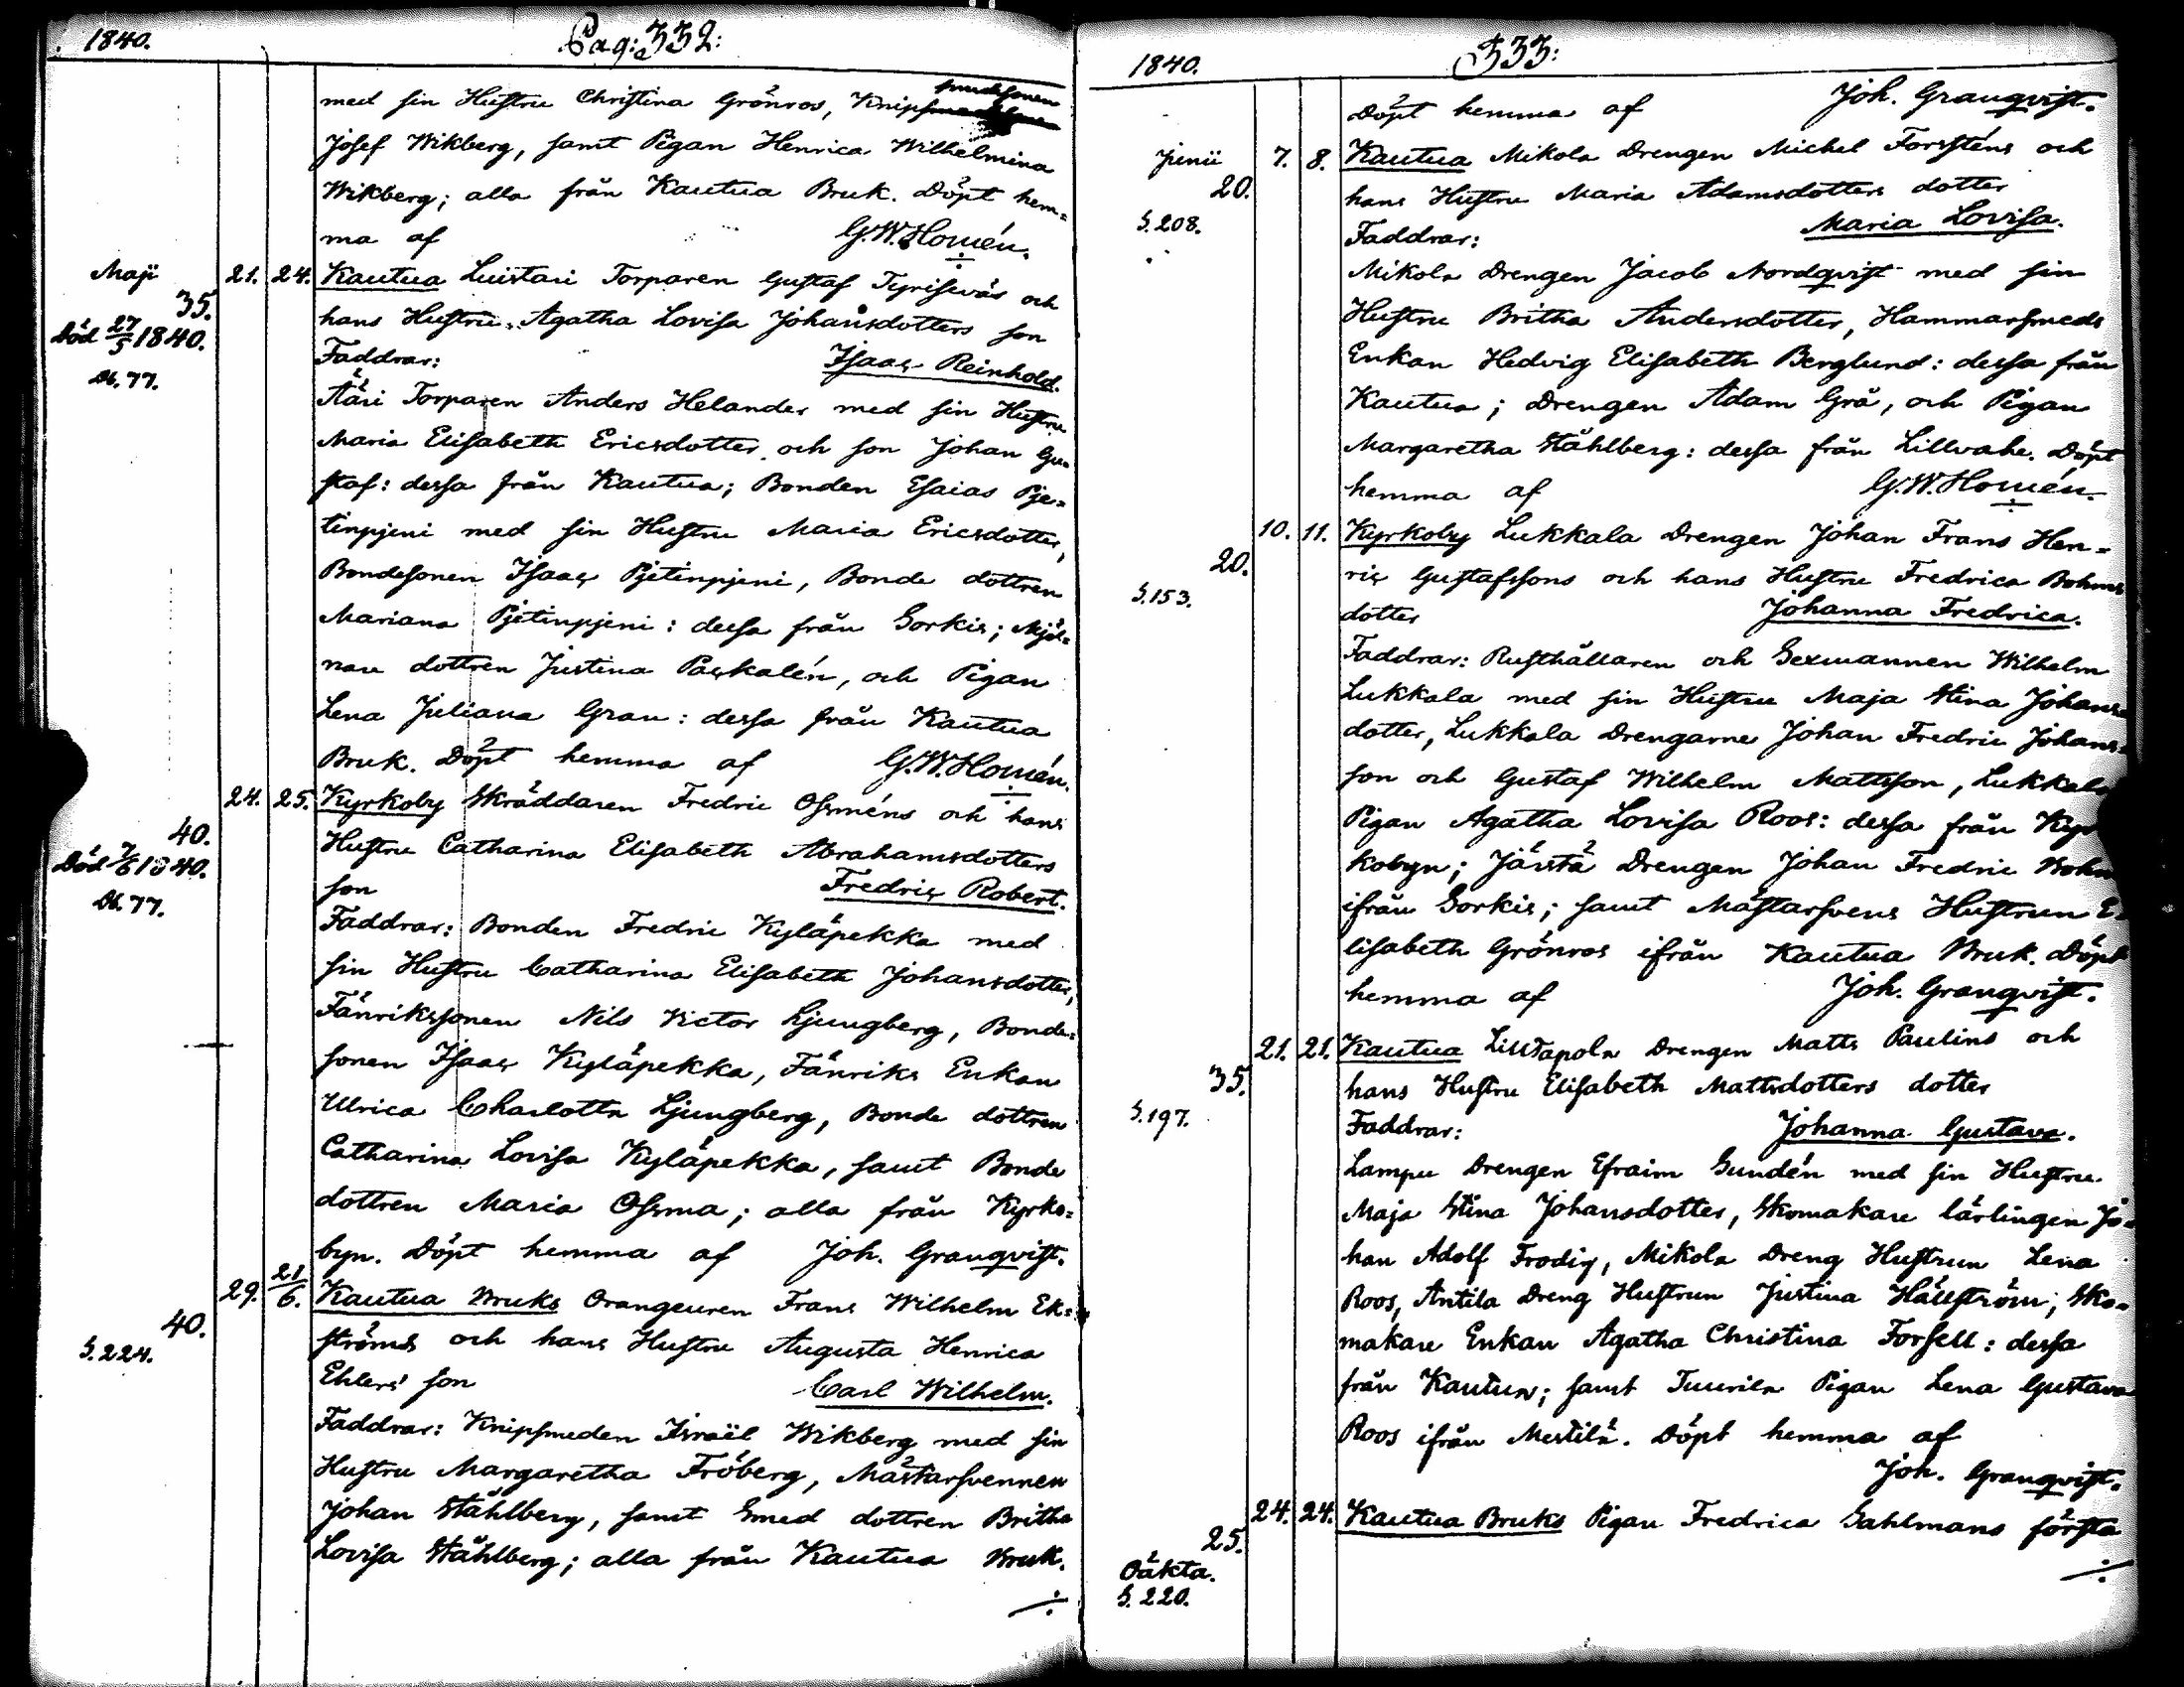 1840.
Pag: 332:
med sin Hustru Christina Grönros, Knip smedsonen
Josef Wikberg, samt Pigan Henrica Wilhelmina
Wikberg; alla från Kautua Bruk. Döpt hem=
ma af G.W. Homén.
Maji 21. 24. Kautua Luistari Torparen Gustaf Tyriseväs och
35. hans Hustru, Agatha Lovisa Johansdotters son
Död 27/5 1840. Faddrar: Isaac Reinhold.
Db. 77. Ääri Torparen Anders Helander med sin Hustru
Maria Elisabeth Ericsdotter och son Johan Gu=
staf: dessa från Kautua; Bonden Esaias Pje=
tinpjeni med sin Hustru Maria Ericsdotter,
Bondesonen Isaac Pjetinpjeni, Bonde dottren
Mariana Pjetinpjeni: dessa från Sorkis; Mjöl=
nare dottren Justina Packalén, och Pigan
Lena Juliana Gran: dessa från Kautua
Bruk. Döpt hemma af G.W. Homén.
24. 25. Kyrkoby Skräddaren Fredric Ofsméns och hans
40. Hustru Catharina Elisabeth Abrahamsdotters
Död 7/6 1840. son Fredric Robert.
Db. 77. Faddrar: Bonden Fredric Kyläpekka med
sin Hustru Catharina Elisabeth Johansdotter,
Fänrikssonen Nils Victor Ljungberg, Bonde=
sonen Isaac Kyläpekka, Fänriks Enkan
Ulrica Charlotta Ljungberg, Bonde dottren
Catharina Lovisa Kyläpekka, samt Bonde
dottren Maria Ofsma; alla från Kyrko=
byn. Döpt hemma af Joh. Granqvist.
29. 21/6. Kautua Bruks Orangeuren Frans Wilhelm Ek=
40. ströms och hans Hustru Augusta Henrica
S. 224. Ehlers' son Carl Wilhelm.
Faddrar: Knipsmeden Israël Wikberg med sin
Hustru Margaretha Fröberg, Mästarsvennen
Johan Ståhlberg, samt Smed dottren Britha
Lovisa Ståhlberg; alla från Kautua Bruk.
÷
1840.
333:
Döpt hemma af Joh. Granqvist.
Junii 7. 8. Kautua Mikola Drengen Michel Forsténs och
20. hans Hustru Maria Adamsdotters dotter
S. 208. Faddrar: Maria Lovisa.
Mikola Drengen Jacob Nordqvist med sin
Hustru Britha Andersdotter, Hammarsmeds
Enkan Hedvig Elisabeth Berglund: dessa från
Kautua; Drengen Adam Grå, och Pigan
Margaretha Ståhlberg: dessa från Lillvahe. Döpt
hemma af G.W. Homén.
10. 11. Kyrkoby Lukkala Drengen Johan Frans Hen=
20. ric Gustafssons och hans Hustru Fredrica Bohms
S. 153. dotter Johanna Fredrica.
Faddrar: Rusthållaren och Sexmannen Wilhelm
Lukkala med sin Hustru Maja Stina Johans=
dotter, Lukkala Drengarne Johan Fredric Johans=
son och Gustaf Wilhelm Mattsson, Lukkala
Pigan Agatha Lovisa Roos: dessa från Kyr
kobyn; Järstä Drengen Johan Fredric Bohm
ifrån Sorkis; samt Mästarsvens Hustrun E=
lisabeth Grönros ifrån Kautua Bruk. Döpt
hemma af Joh. Granqvist.
21. 21. Kautua Liutapola Drengen Matts Paulins och
35. hans Hustru Elisabeth Mattsdotters dotter
S. 197. Faddrar: Johanna Gustava.
Lampu Drengen Efraim Sundén med sin Hustru
Maja Stina Johansdotter, Skomakare lärlingen Jo=
han Adolf Frodig, Mikola Dreng Hustrun Lena
Roos, Antila Dreng Hustrun Justina Hällström; Sko=
makare Enkan Agatha Christina Forsell: dessa
från Kautua; samt Tuurila Pigan Lena Gustava
Roos ifrån Mestilä. Döpt hemma af
Joh. Granqvist.
24. 24. Kautua Bruks Pigan Fredrica Sahlmans första
25.
Oäkta.
S. 220.
÷